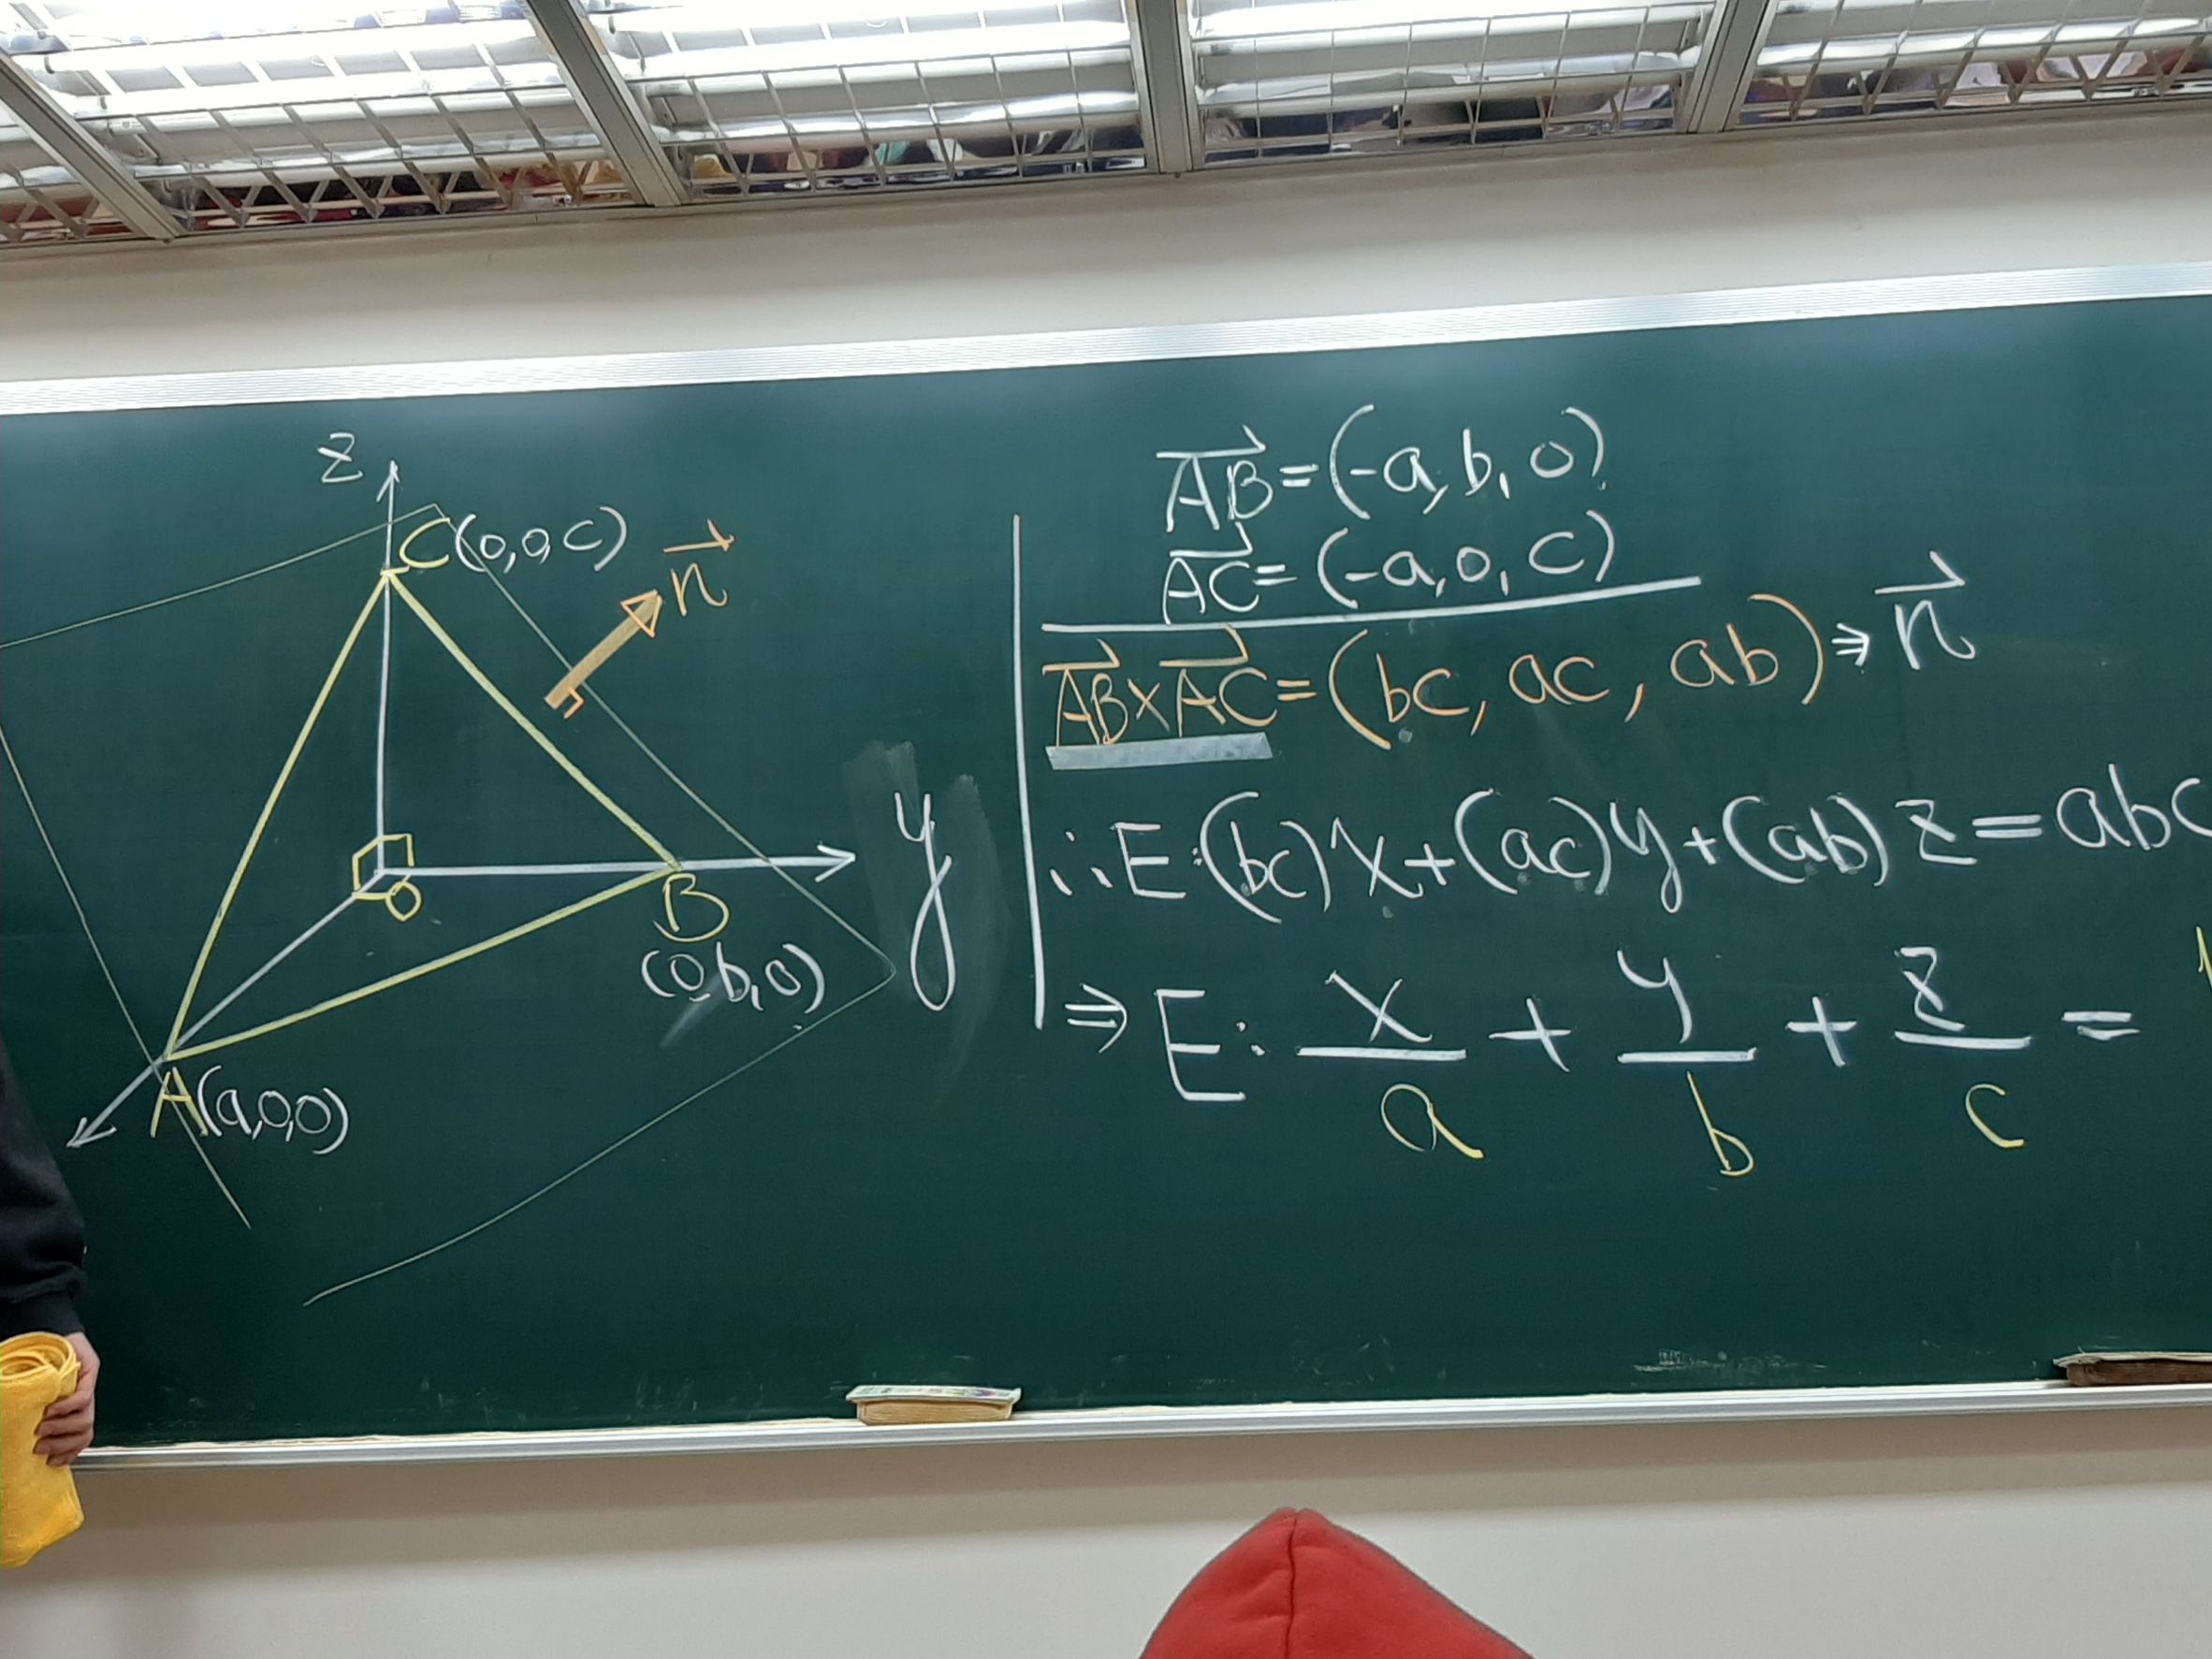 z
C(0,0,c)
n
y
O
B
(0,b,0)
A(a,0,0)
AB=(-a,b,0)
AC=(-a,0,c)
AB×AC=(bc, ac, ab)⇒n
∴E:(bc)x+(ac)y+(ab)z=abc
⇒E: x/a + y/b + z/c =